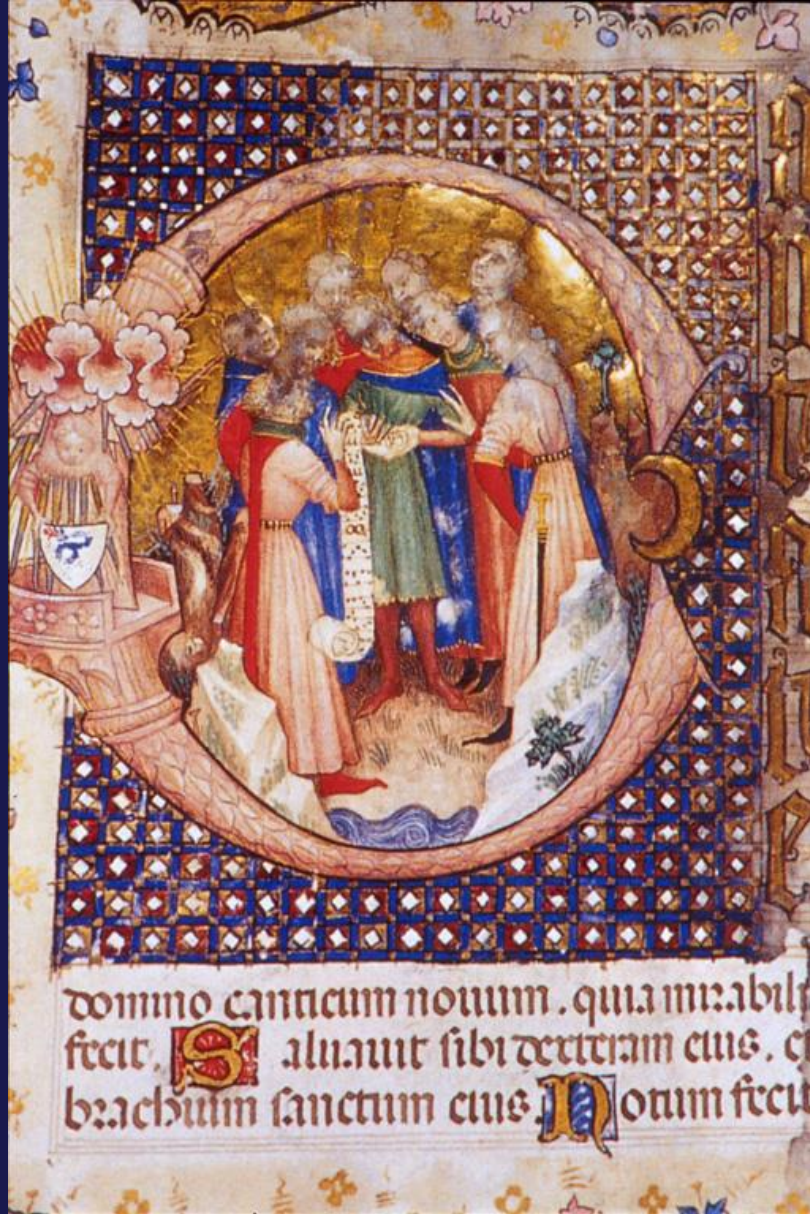 domino canticum nouum. quia mirabili
fecit. Saluauit sibi dexteram eius. e
brachium sanctum eius. Notum feci